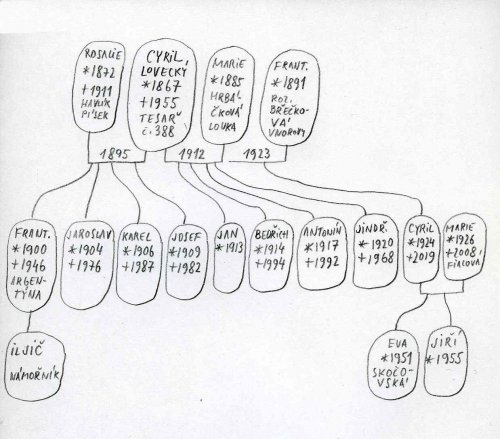 ROSALIE
*1872
+1911
HAVLÍK
PÍSEK
CYRIL
LOVECKÝ
*1867
+1955
TESAŘ
č.388
MARIE
*1885
HRBÁ-
ČKOVÁ
LOUKA
FRANT.
*1891
ROZ.
BŘEČKO-
VÁ
VNOROVY
1895
1912
1923
FRANT.
*1900
+1946
ARGEN-
TÝNA
JAROSLAV
*1904
+1976
KAREL
*1906
+1987
JOSEF
*1909
+1982
JAN
*1913
BEDŘICH
*1914
+1994
ANTONÍN
*1917
+1992
JINDŘ.
*1920
+1968
CYRIL
*1924
+2019
MARIE
*1926
+2008
FIALOVÁ
ILJIČ
NÁMOŘNÍK
EVA
*1951
SKOČO-
VSKÁ
JIŘÍ
*1955